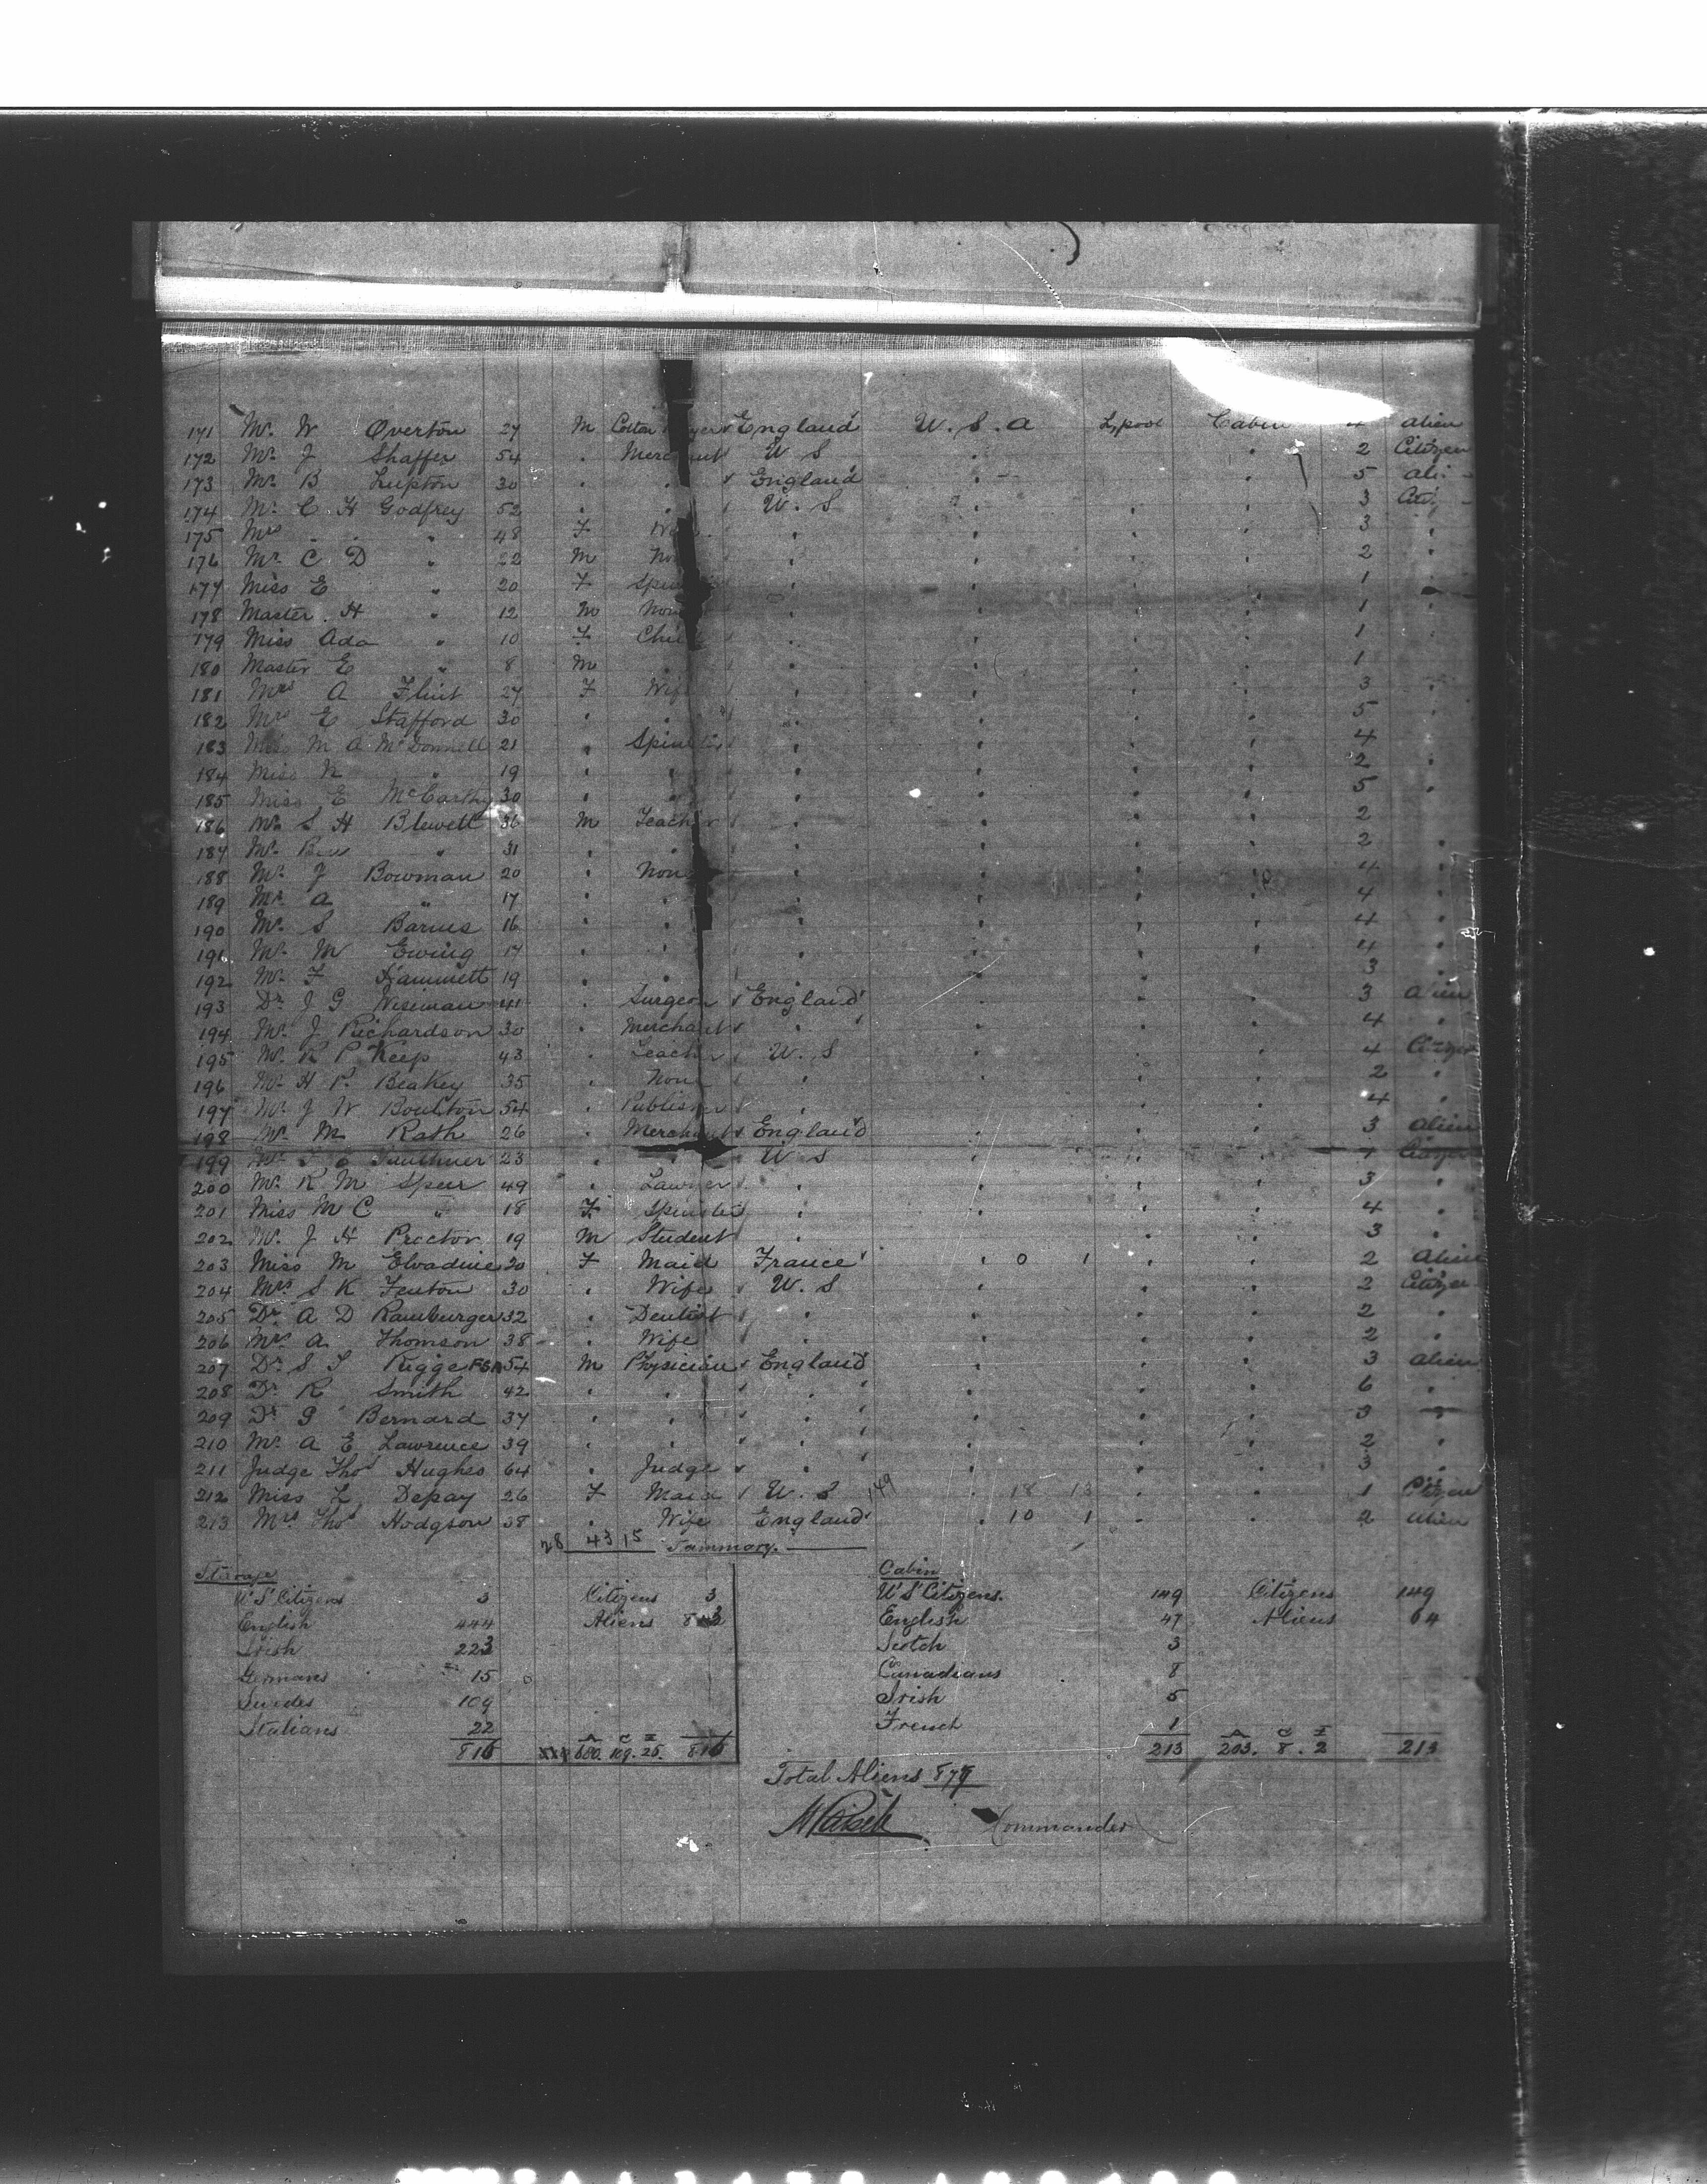 171 Mr. W Overton 27 M Cotton England U. S. A L,pool Cabin 4 alien
172 Mr. J Shaffer 54 . Merchant U S " " 2 Citizen
173 Mr. B Lupton 30 " " England " " 5 Ali-
174 Mr. C. H Godfrey 52 " " U. S " " " 3
175 Mrs " " 48 F " " " " 3 "
176 Mr. C D " 22 M Non " " " " 2 "
177 Miss E " 20 F Spin " " " " 1 "
178 Master. H " 12 M Non " " " " 1 "
179 Miss Ada " 10 F Child " " " " 1 "
180 Master E " 8 M " " " " " 1 "
181 Mrs A Flint 27 F Wife " " " " 3 "
182 Mrs E Stafford 30 " " " " " " 5 "
183 Miss M A McDonnell 21 " Spinster " " " " 4 "
184 Miss N " 19 " " " " " " 2 "
185 Miss E McCarthy 30 " " " " " " 5 "
186 Mr. S H Blewett 36 M Teacher " " " " 2
187 Mr. Ben " 31 " " " " " " 2 "
188 Mr. J Bowman 20 " None " " " " 4 "
189 Mr. A " 17 " " " " " " 4 "
190 Mr. S Barnes 16 " " " " " " 4 "
191 Mr. M Ewing 17 " " " " " " 4 "
192 Mr. F Hammett 19 " " " " " " 3 "
193 Dr. J G Wiseman 41 " Surgeon England " " " 3 alien
194 Mr. J Richardson 30 " Merchant " " " " 4 "
195 Mr. R P Keep 43 " Teacher U. S " " " 4 Citizen
196 Mr. H P. Beakey 35 " None " " " " 2 "
197 Mr. J W Boulton 54 " Publisher " " " " 4 "
198 Mr. M Rath 26 " Merchant England " " " 3 Alien
199 Mr. E Faulkner 23 " " U S " " " 1 Citizen
200 Mr. R M Speer 49 " Lawyer " " " " 3 "
201 Miss M C " 18 F Spinster " " " " 4 "
202 Mr. J H Proctor 19 M Student " " " " 3 "
203 Miss M Elvadine 20 F Maid France " 0 1 " " 2 Alien
204 Mrs S K Fenton 30 " Wife U. S " " " 2 Citizen
205 Dr. A D Ramburger 32 " Dentist " " " " 2 "
206 Mrs A. Thomson 38 " Wife " " " " 2 "
207 Dr. S T Rigge FSA 54 M Physician England " " " 3 alien
208 Dr. R Smith 42 " " " " " " 6 "
209 Dr. G Bernard 37 " " " " " " 3 "
210 Mr. A E Lawrence 39 " " " " " " 2 "
211 Judge Thos Hughes 64 " Judge " " " " 3 "
212 Miss L, Depay 26 F Maid U. S 149 " 18 13 " " 1 Citizen
213 Mrs Thos Hodgson 38 " Wife England " 10 1 " " 2 Alien
28 43 15 Summary.
Steerage Cabin
U'S' Citizens 3 Citizens 3 U'S' Citizens. 149 Citizens 149
English 444 Aliens English 47 Aliens 64
Irish 223 Scotch 3
Germans 15 Canadians 8
Swedes 109 Irish 5
Italians 22 French 1
816 A C I 680. 109. 26. 816 213 A C I 203. 8. 2 213
Total Aliens 877
Commander